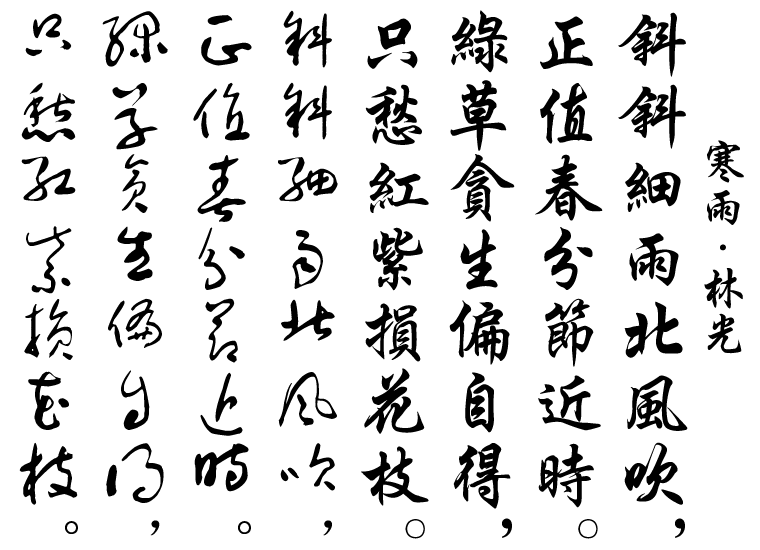 寒雨·林光
斜斜細雨北風吹，
正值春分節近時。
綠草貪生偏自得，
只愁紅紫損花枝。
斜斜細雨北風吹，
正值春分節近時。
綠草貪生偏自得，
只愁紅紫損花枝。